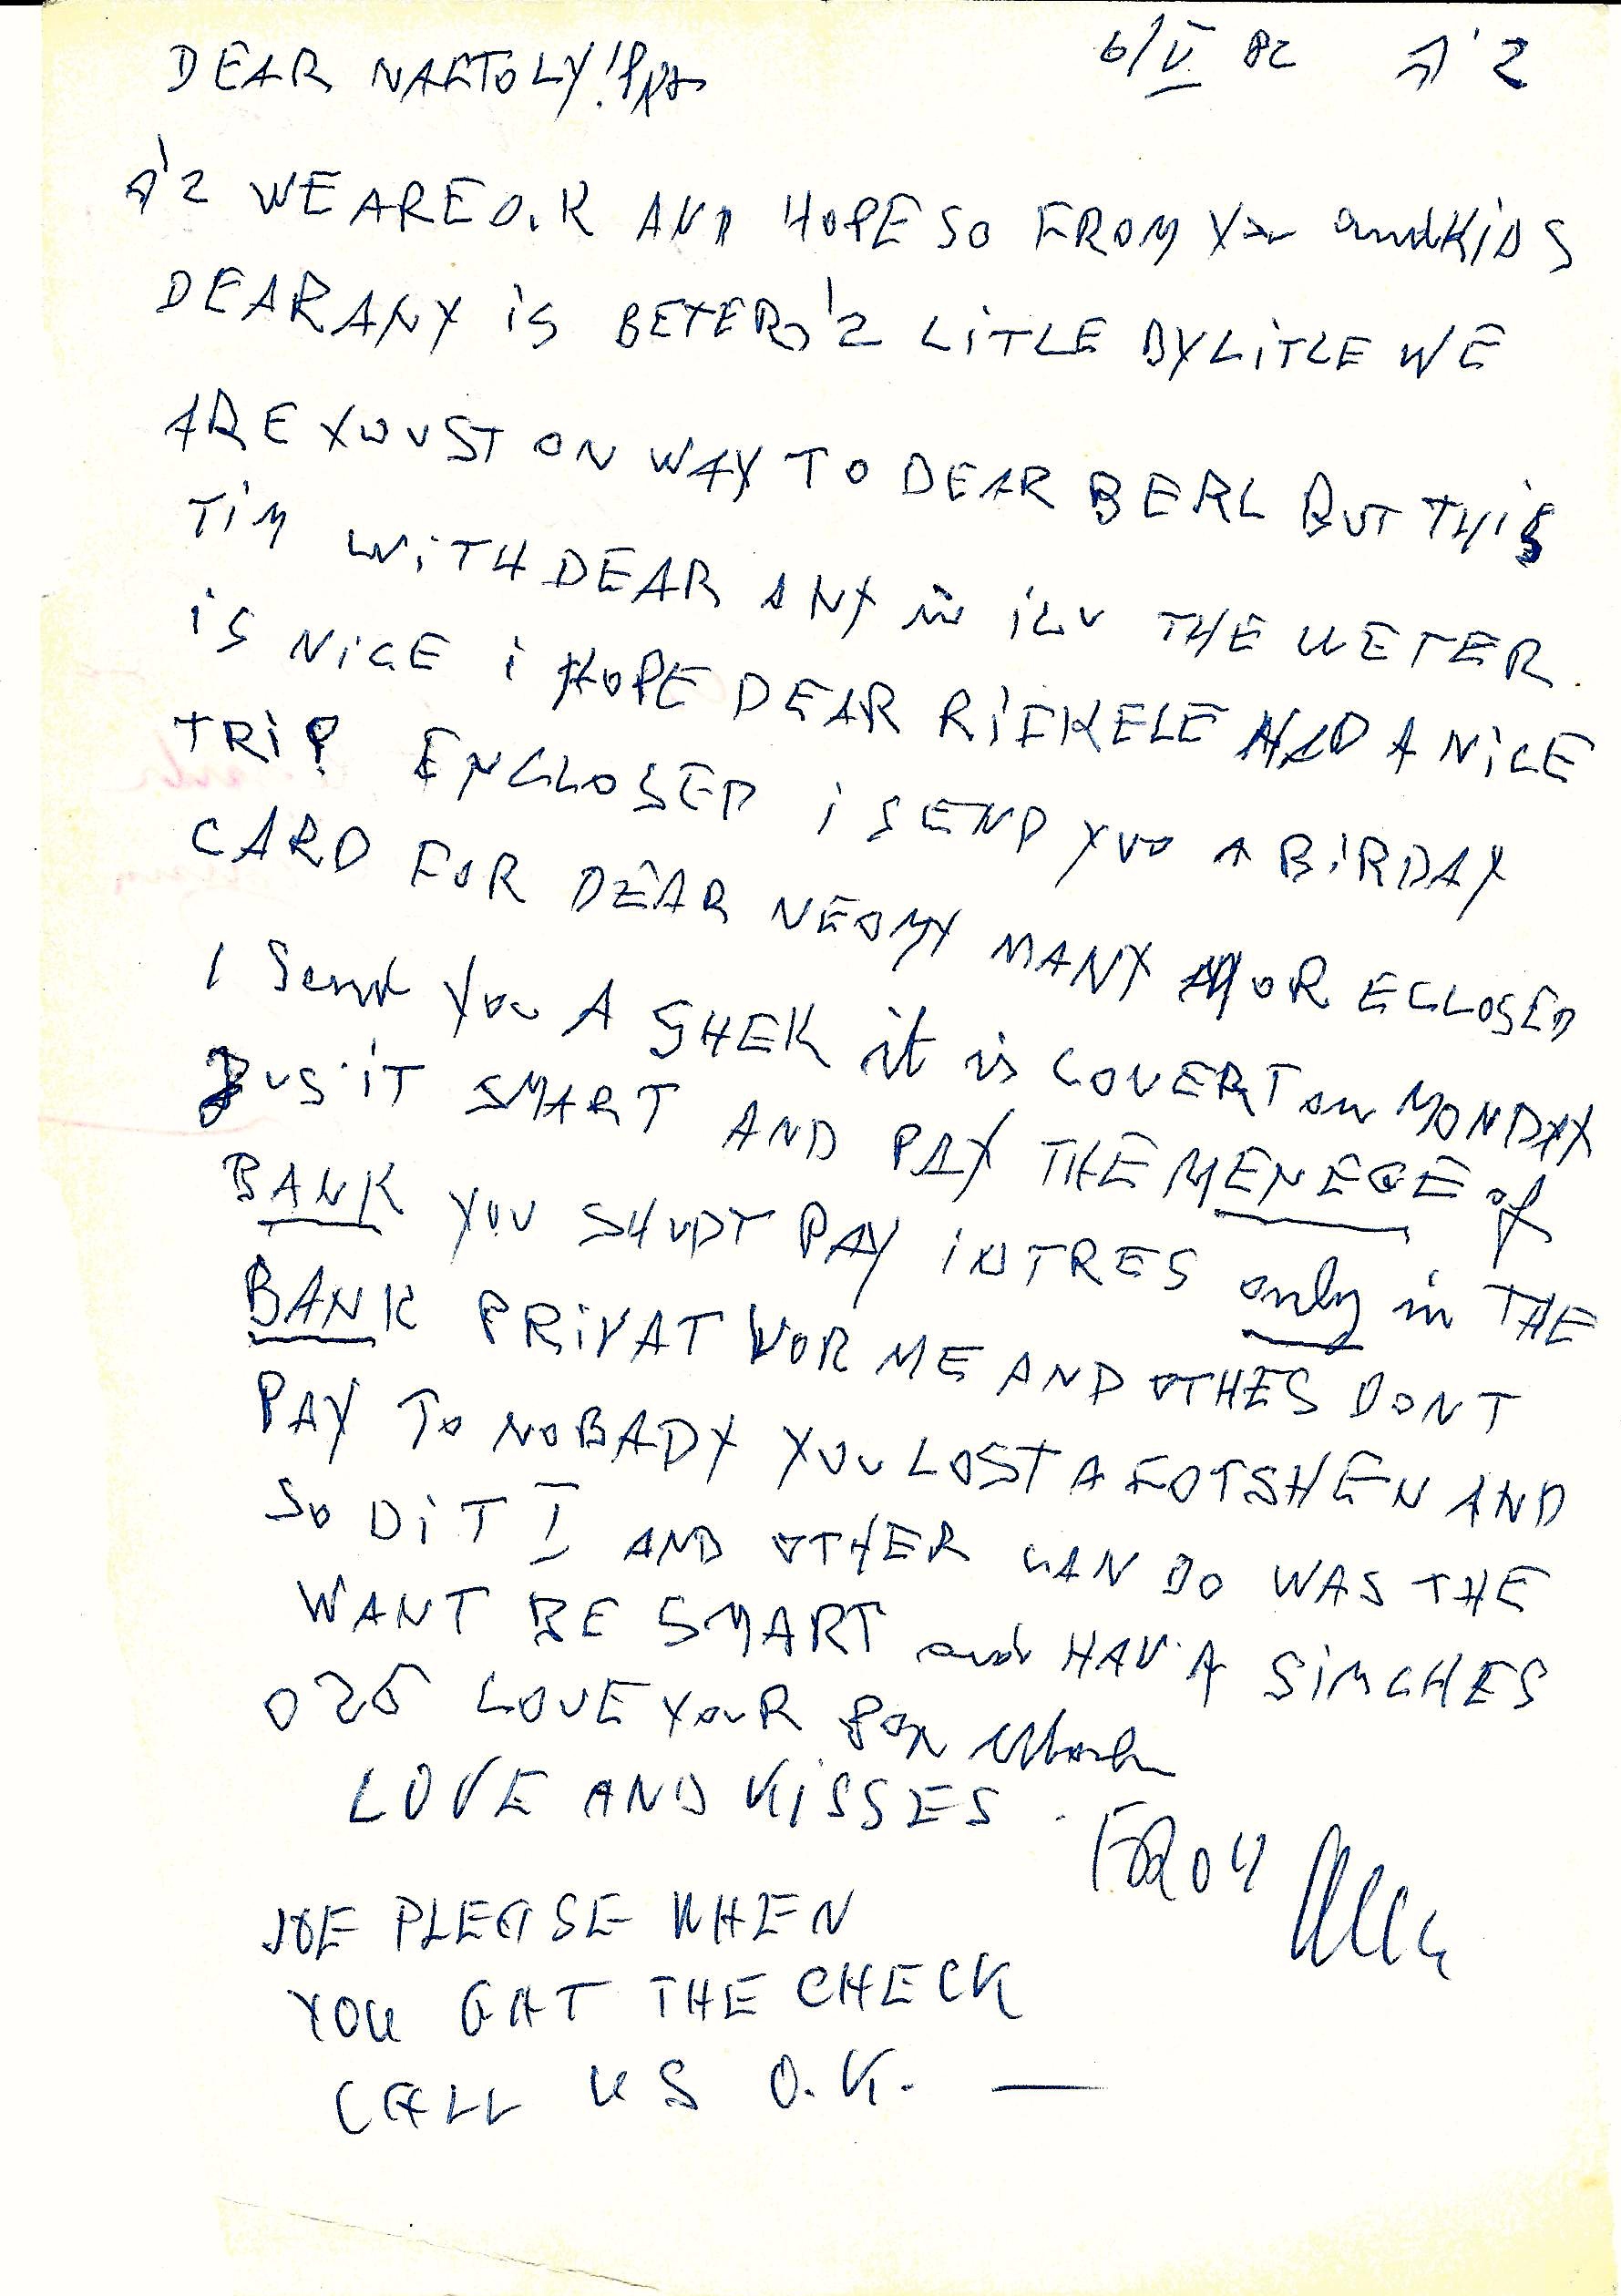 6/V 82 ב'ה
DEAR NAFTOLY!
ב'ה WE ARE O.K AND HOPE SO FROM You and KiDS
DEAR ANY iS BETER ב'ה LiTLE BY LiTLE WE
ARE YOUST ON WAY TO DEAR BERL BUT THiS
TiM WiTH DEAR ANY in iLU THE UETER
iS NiCE i HOPE DEAR RiFKELE HAD A NiCE
TRiP ENCLOSED i SEND YUO A BiRDAY
CARD FOR DEAR NEOMY MANY MOR ECLOSED
I Send You A SHEK it is COVERT on MONDAY
BUS iT SMART AND PAY THE MENEGE of
BANK YOU SHUDT PAY iNTRES only in THE
BANK PRiVAT WOR ME AND OTHES DONT
PAY To NOBADY YOU LOST A FOTSHEN AND
SO DiT I AND OTHER CAN DO WAS THE
WANT BE SMART and HAV A SiMCHES
LOVE YOUR
LOVE AND KiSSES
FROM
JOE PLEASE WHEN
YOU GAT THE CHECK
CALL US O.K. —